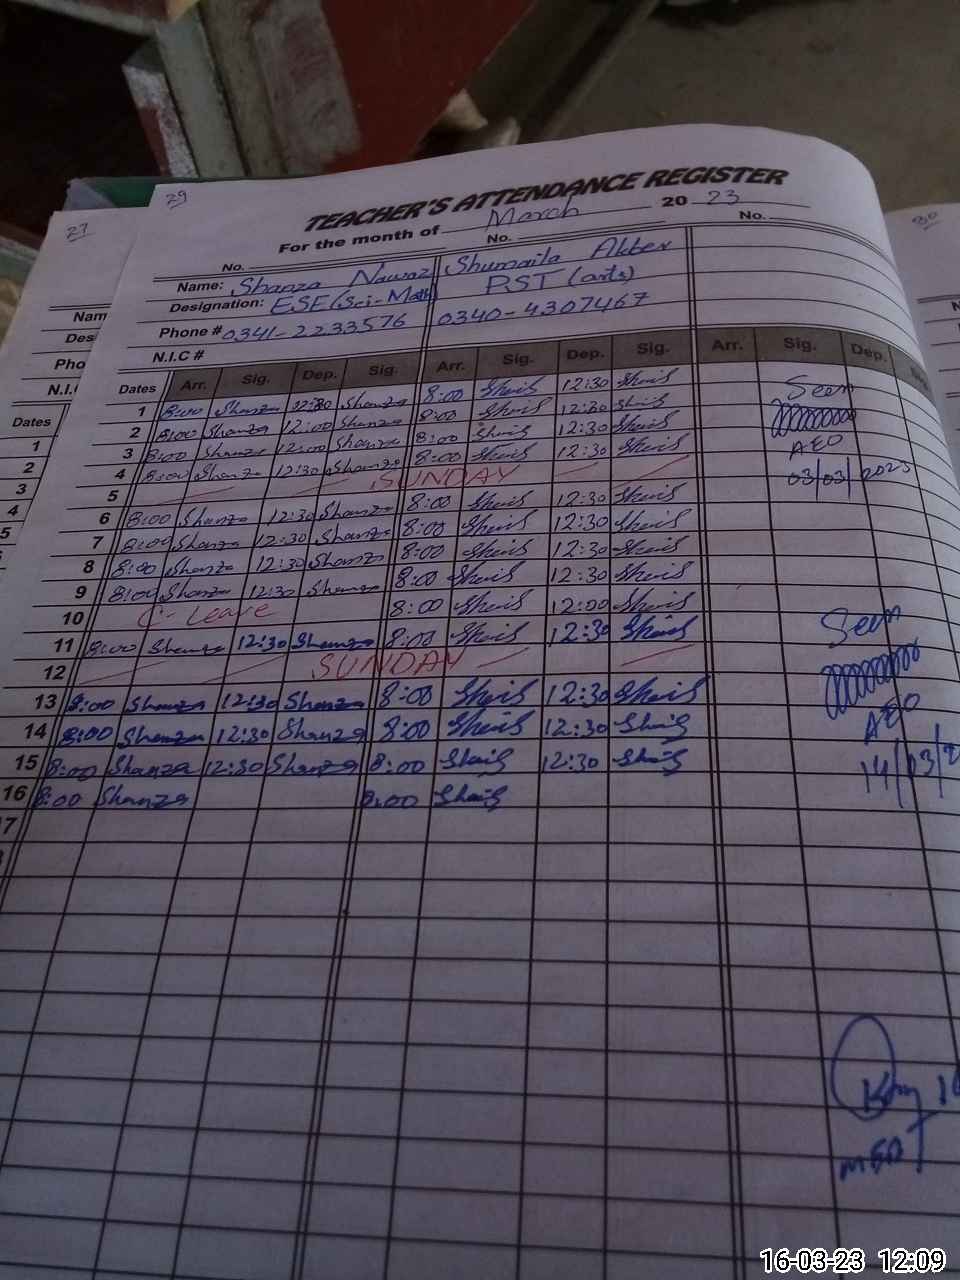 29
27
30
TEACHER'S ATTENDANCE REGISTER
For the month of March 20 23
No. No. No.
Name: Shanza Nawaz Shumaila Akter
Designation: ESE(Sci-Math) PST (arts)
Phone # 0341-2233576 0340-4307467
N.I.C #
Dates Arr. Sig. Dep. Sig. Arr. Sig. Dep. Sig. Arr. Sig. Dep.
1 8:00 Shanza 12:30 Shanza 8:00 12:30 Seen
2 8:00 Shanza 12:00 Shanza 8:00 12:30
3 8:00 Shanza 12:00 Shanza 8:00 12:30 AEO
4 8:00 Shanza 12:30 Shanza 8:00 12:30 03/03/2023
5 SUNDAY
6 8:00 Shanza 12:30 Shanza 8:00 12:30
7 8:00 Shanza 12:30 Shanza 8:00 12:30
8 8:00 Shanza 12:30 Shanza 8:00 12:30
9 8:00 Shanza 12:30 Shanza 8:00 12:30
10 C-Leave 8:00 12:00
11 8:00 Shanza 12:30 Shanza 8:00 12:30 Seen
12 SUNDAY
13 8:00 Shanza 12:30 Shanza 8:00 12:30
14 8:00 Shanza 12:30 Shanza 8:00 12:30 AEO
15 8:00 Shanza 12:30 Shanza 8:00 12:30 14/03/2
16 8:00 Shanza 8:00
7
Nam
Des
Pho
N.I.
Dates
1
2
3
4
5
16-03-23 12:09